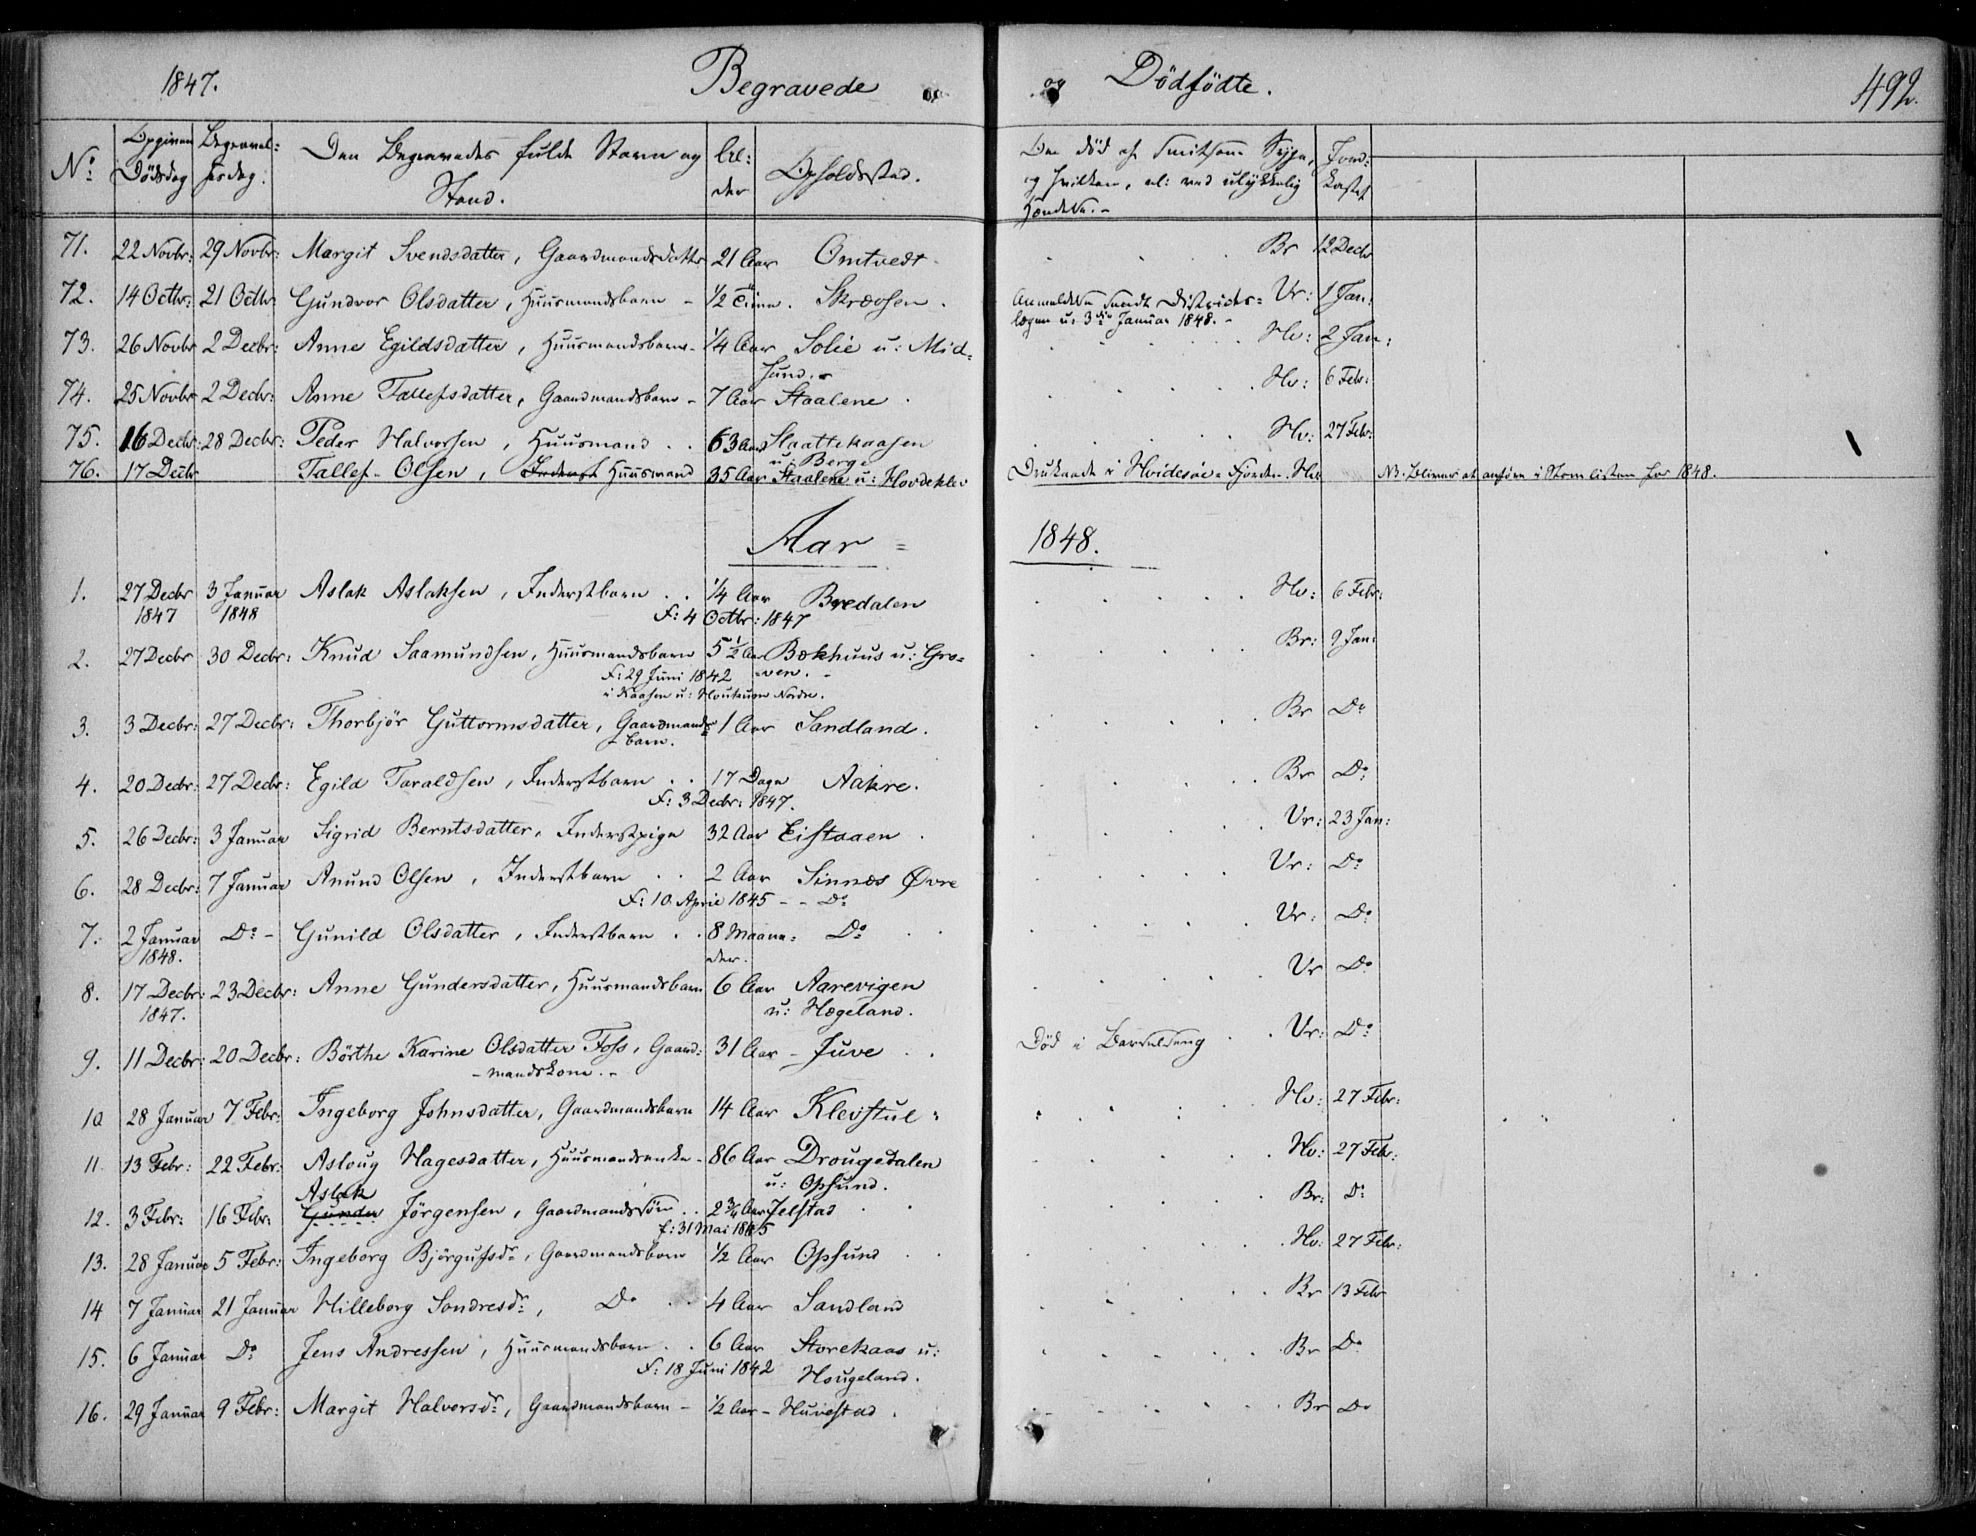 1847. Begravede og Dödfödte. 492.
No. Opgiven Dödsdag Begravelsesdag. Den Begravedes fulde Navn og Stand. Alder Opholdsstad. Om död af smitsom Syge, og hvilken, el: ved ulykkelig Hændelse. -
71. 22 Novbr: 29 Novbr: Margit Svendsdatter, Gaardmandsdatter 21 Aar Omtvedt Br 12 Decbr
72. 14 Octbr: 21 Octbr Gundvor Olsdatter, Huusmandsbarn - ½ Time. Skrævsen. Anmeldelse sendt Districts= Vr: 1 Jan:
lægen u: 3die Januar 1848. -
73. 26 Novbr 2 Decbr: Anne Egildsdatter, Huusmandsbarn - ¼ Aar Solie u: Mid= Hv: 2 Jan:
sund. -
74. 25 Novbr 2 Decbr: Anne Tallefsdatter, Gaardmandsbarn - 7 Aar Staalene . Hv: 6 Febr:
75. 16 Decbr: 28 Decbr: Peder Halvorsen, Huusmand . . 63 Aar Slaattekaasen Hv: 27 Febr:
u: Berge
76. 17 Decbr Tallef Olsen, Inderst Huusmand 35 Aar Staalene u: Hovdeklev Druknede i Hvidesöe-Fjorden. Hv: NB. Bliver at anföre i Navnlisten for 1848.
Aar = 1848.
1. 27 Decbr 3 Januar Aslak Aslaksen, Inderstbarn . . ¼ Aar Bredalen Hv: 6 Febr:
1847 1848 F: 4 Octbr: 1847
2. 27 Decbr 30 Decbr: Knud Saamundsen, Huusmandsbarn 5½ Aar Bækhuus u: Gro= Br: 9 Jan:
F: 29 Juni 1842 =ven. -
i Kaasen u: Houkum Nordre.
3. 3 Decbr: 27 Decbr: Thorbjör Guttormsdatter, Gaardmands= 1 Aar Sandland. Br Do
barn.
4. 20 Decbr: 27 Decbr: Egild Taraldsen, Inderstbarn . . 17 Dage Aakre. Br Do:
F: 3 Decbr: 1847.
5. 26 Decbr: 3 Januar Sigrid Berntsdatter, Inderstpige 32 Aar Eistaaen . Vr: 23 Jan:
6. 28 Decbr: 7 Januar Anund Olsen, Inderstbarn . . 2 Aar Sinnæs Övre Vr: Do:
F: 10 April 1845 - - Do
7. 2 Januar Do - Gunild Olsdatter, Inderstbarn . . 8 Maane= Do Vr: Do:
1848. der.
8. 17 Decbr: 23 Decbr: Anne Gundersdatter, Huusmandsbarn 6 Aar Aarevigen Vr Do
1847. u: Hægeland.
9. 11 Decbr: 20 Decbr: Börthe Karine Olsdatter Foss, Gaard= 31 Aar - Juve . . Död i Barselseng . . Vr: Do:
- mandskone. -
10 28 Januar 7 Febr: Ingeborg Johnsdatter, Gaardmandsbarn 14 Aar Klevstul = Hv: 27 Febr:
11. 13 Febr: 22 Febr: Asloug Hagesdatter, Huusmandsenke - 86 Aar Drougedalen Hv: 27 Febr:
u: Opsund.
Aslak
12. 3 Febr: 16 Febr: Gunder Jörgensen, Gaardmandssön . . 2¾ Aar Jelstad . Br: Do:
f: 31 Mai 1845
13. 28 Januar 5 Febr: Ingeborg Björgufsdr, Gaardmandsbarn ½ Aar Opsund . . Hv: 27 Febr:
14 7 Januar 21 Januar Hilleborg Sondresdr:, Do . . 4 Aar Sandland Br 13 Febr
15. 6 Januar Do: Jens Andressen, Huusmandsbarn . . 6 Aar Storekaas u: Br Do
F: 18 Juni 1842 Hougeland.
16. 29 Januar 9 Febr: Margit Halvorsdr:, Gaardmandsbarn - ½ Aar - Huvestad . Br Do